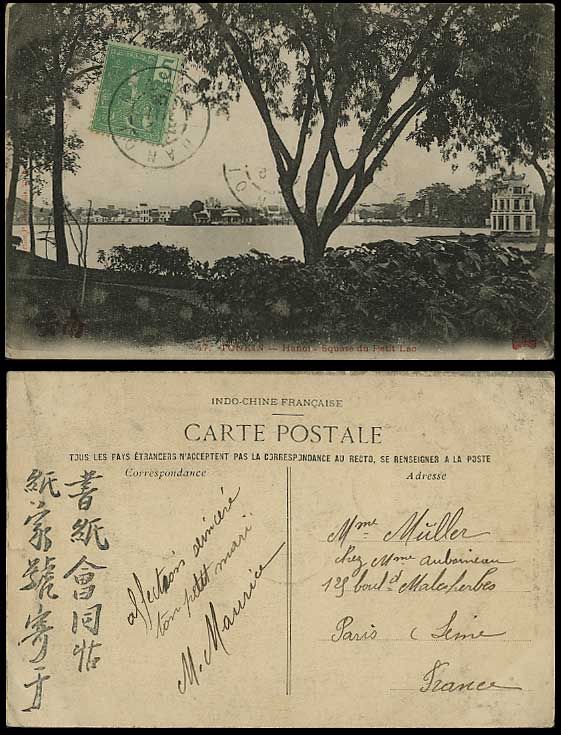 47. TONKIN — Hanoi - Square du Petit Lac
INDO-CHINE FRANÇAISE
CARTE POSTALE
TOUS LES PAYS ÉTRANGERS N'ACCEPTENT PAS LA CORRESPONDANCE AU RECTO, SE RENSEIGNER A LA POSTE
Correspondance
Adresse
書紙會同帖
紙家號寄于
affection sincère
ton petit mari
M. Maurice
Mme Müller
chez Mme Aubouineau
125 boulᵈ Malesherbes
Paris (Seine
France